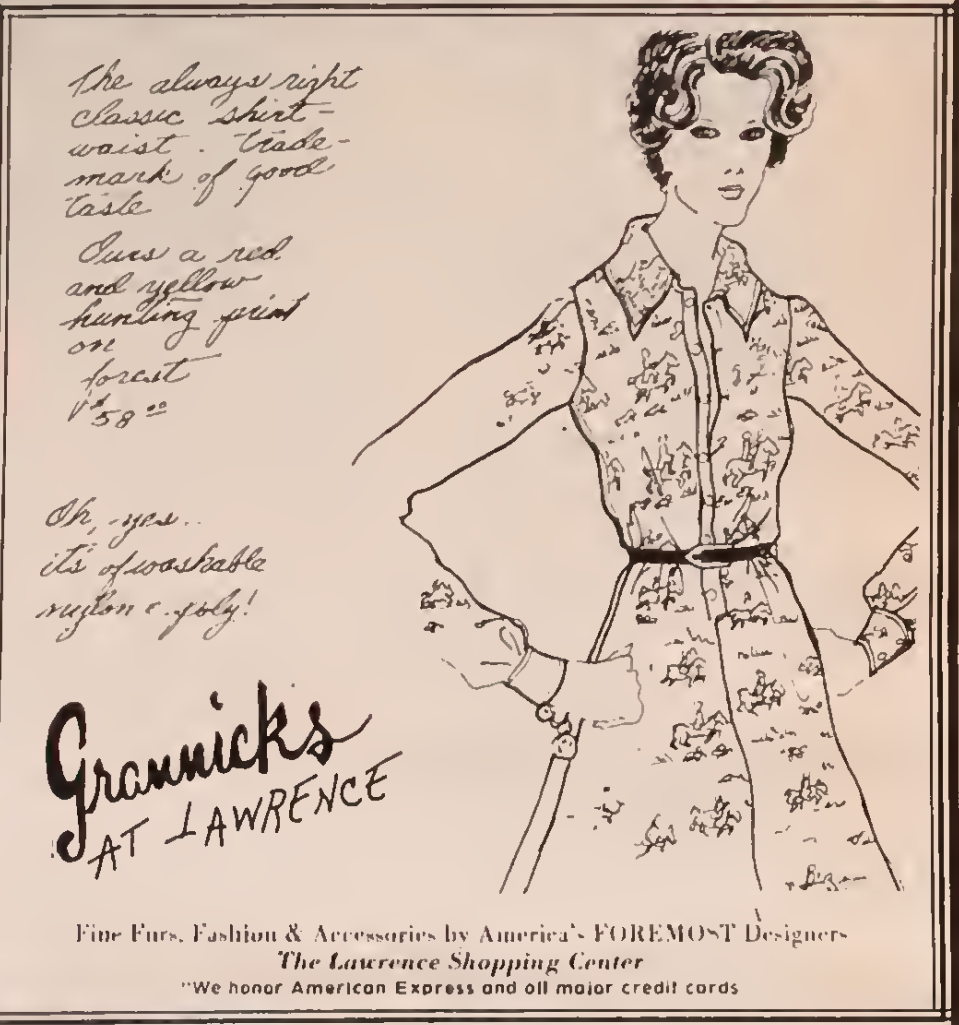 The always right
classic shirt-
waist. Trade-
mark of good
taste
Ours a red
and yellow
hunting print
on
forest
$58.00
Oh, yes..
it's of washable
nylon & poly!
Grannicks
AT LAWRENCE
Fine Furs, Fashion & Accessories by America's FOREMOST Designers
The Lawrence Shopping Center
"We honor American Express and all major credit cards